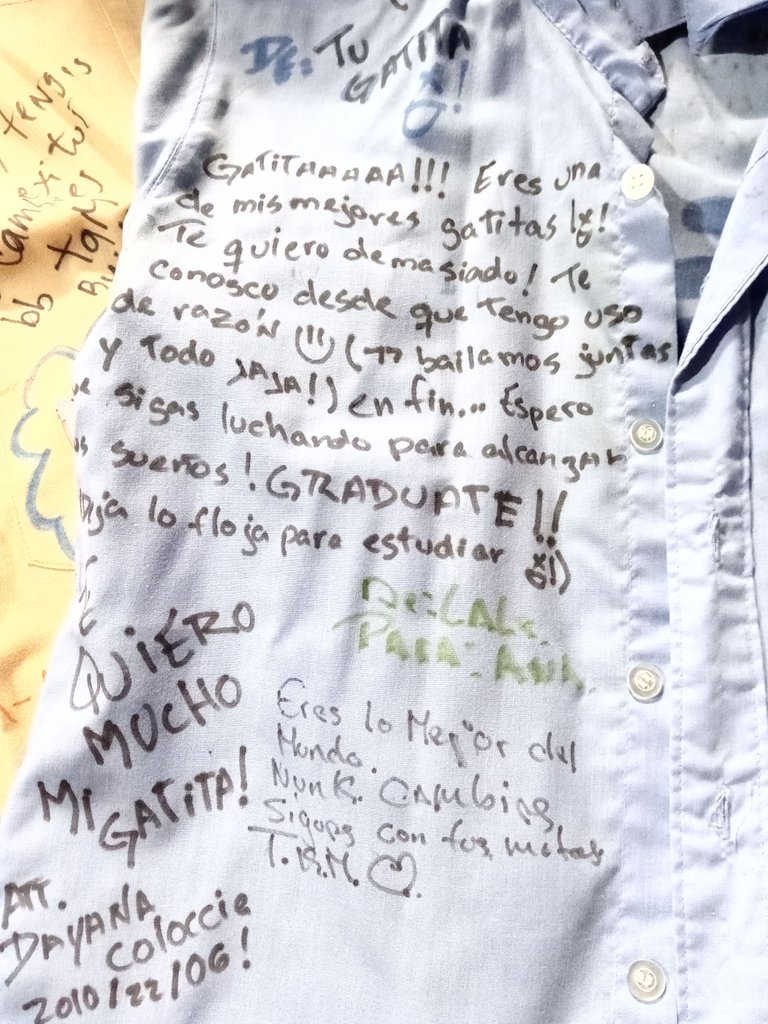 DE: TU
GATITA
GATITAAAAA!!! Eres una
de mis mejores gatitas
Te quiero demasiado! Te
conosco desde que Tengo uso
de razón (bailamos juntas
y Todo JAJA!) en fin... Espero
sigas luchando para alcanzar
sueños! GRADUATE!!
Deja lo floja para estudiar
TE
QUIERO
MUCHO
MI GATITA!
ATT.
DAYANA
Coloccie
2010/22/06!
De: LALE.
PARA: ANA.
Eres lo Mejor del
Mundo.
Nunk. Cambies
Sigue con tus metas
T.K.M.
teng's
bb